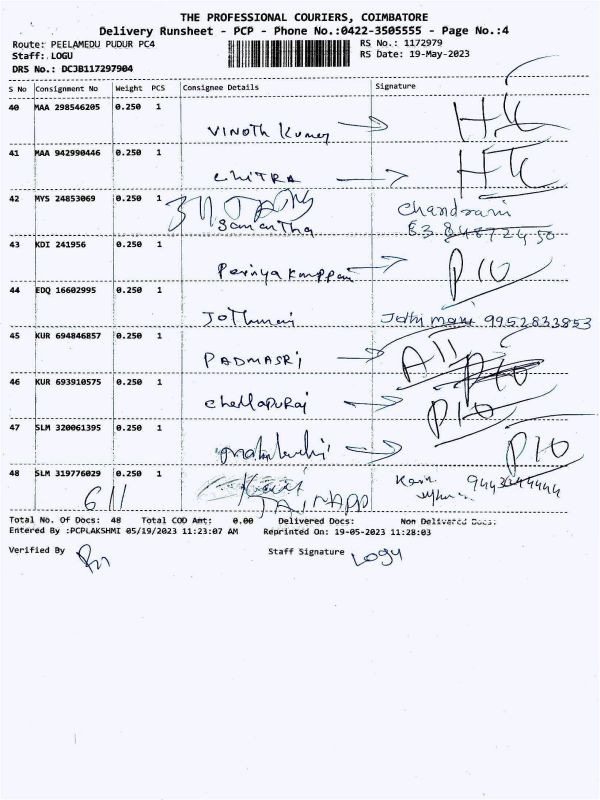 THE PROFESSIONAL COURIERS, COIMBATORE
Delivery Runsheet - PCP - Phone No.:0422-3505555 - Page No.:4
Route: PEELAMEDU PUDUR PC4
RS No.: 1172979
Staff: LOGU
RS Date: 19-May-2023
DRS No.: DCJB117297904
S No Consignment No Weight PCS Consignee Details Signature
40 MAA 298546205 0.250 1
VINOTH Kumar H/C
41 MAA 942990446 0.250 1
CHITRA H/C
42 MYS 24853069 0.250 1
Samantha Chandrani
43 KDI 241956 0.250 1
Periya Karuppan P10
44 EDQ 16602995 0.250 1
Jothimani Jothi mani 9952833853
45 KUR 694846857 0.250 1
PADMASRI A11
46 KUR 693910575 0.250 1
Chellapuraj P10
47 SLM 320061395 0.250 1
P10
48 SLM 319776029 0.250 1
611
Total No. Of Docs: 48 Total COD Amt: 0.00 Delivered Docs: Non Delivered Docs:
Entered By :PCPLAKSHMI 05/19/2023 11:23:07 AM Reprinted On: 19-05-2023 11:28:03
Verified By Staff Signature Logu